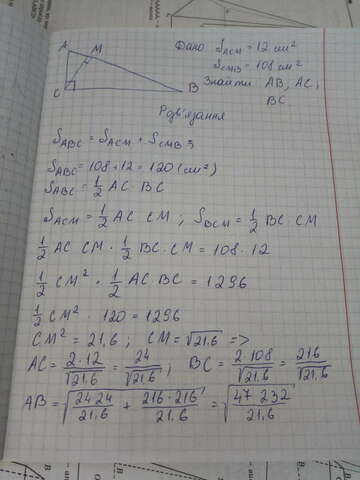 A M C B
Дано S_ACM = 12 см²
S_CMB = 108 см²
Знайти AB, AC,
BC
Розв'язання
S_ABC = S_ACM + S_CMB ;
S_ABC = 108 + 12 = 120 (см²)
S_ABC = 1/2 AC · BC
S_ACM = 1/2 AC · CM ; S_BCM = 1/2 BC · CM
1/2 AC CM · 1/2 BC · CM = 108 · 12
1/2 CM² · 1/2 AC BC = 1296
1/2 CM² · 120 = 1296
CM² = 21,6 ; CM = √21,6 =>
AC = 2·12/√21,6 = 24/√21,6 ; BC = 2·108/√21,6 = 216/√21,6
AB = √(24·24/21,6 + 216·216/21,6) = √(47 232/21,6)